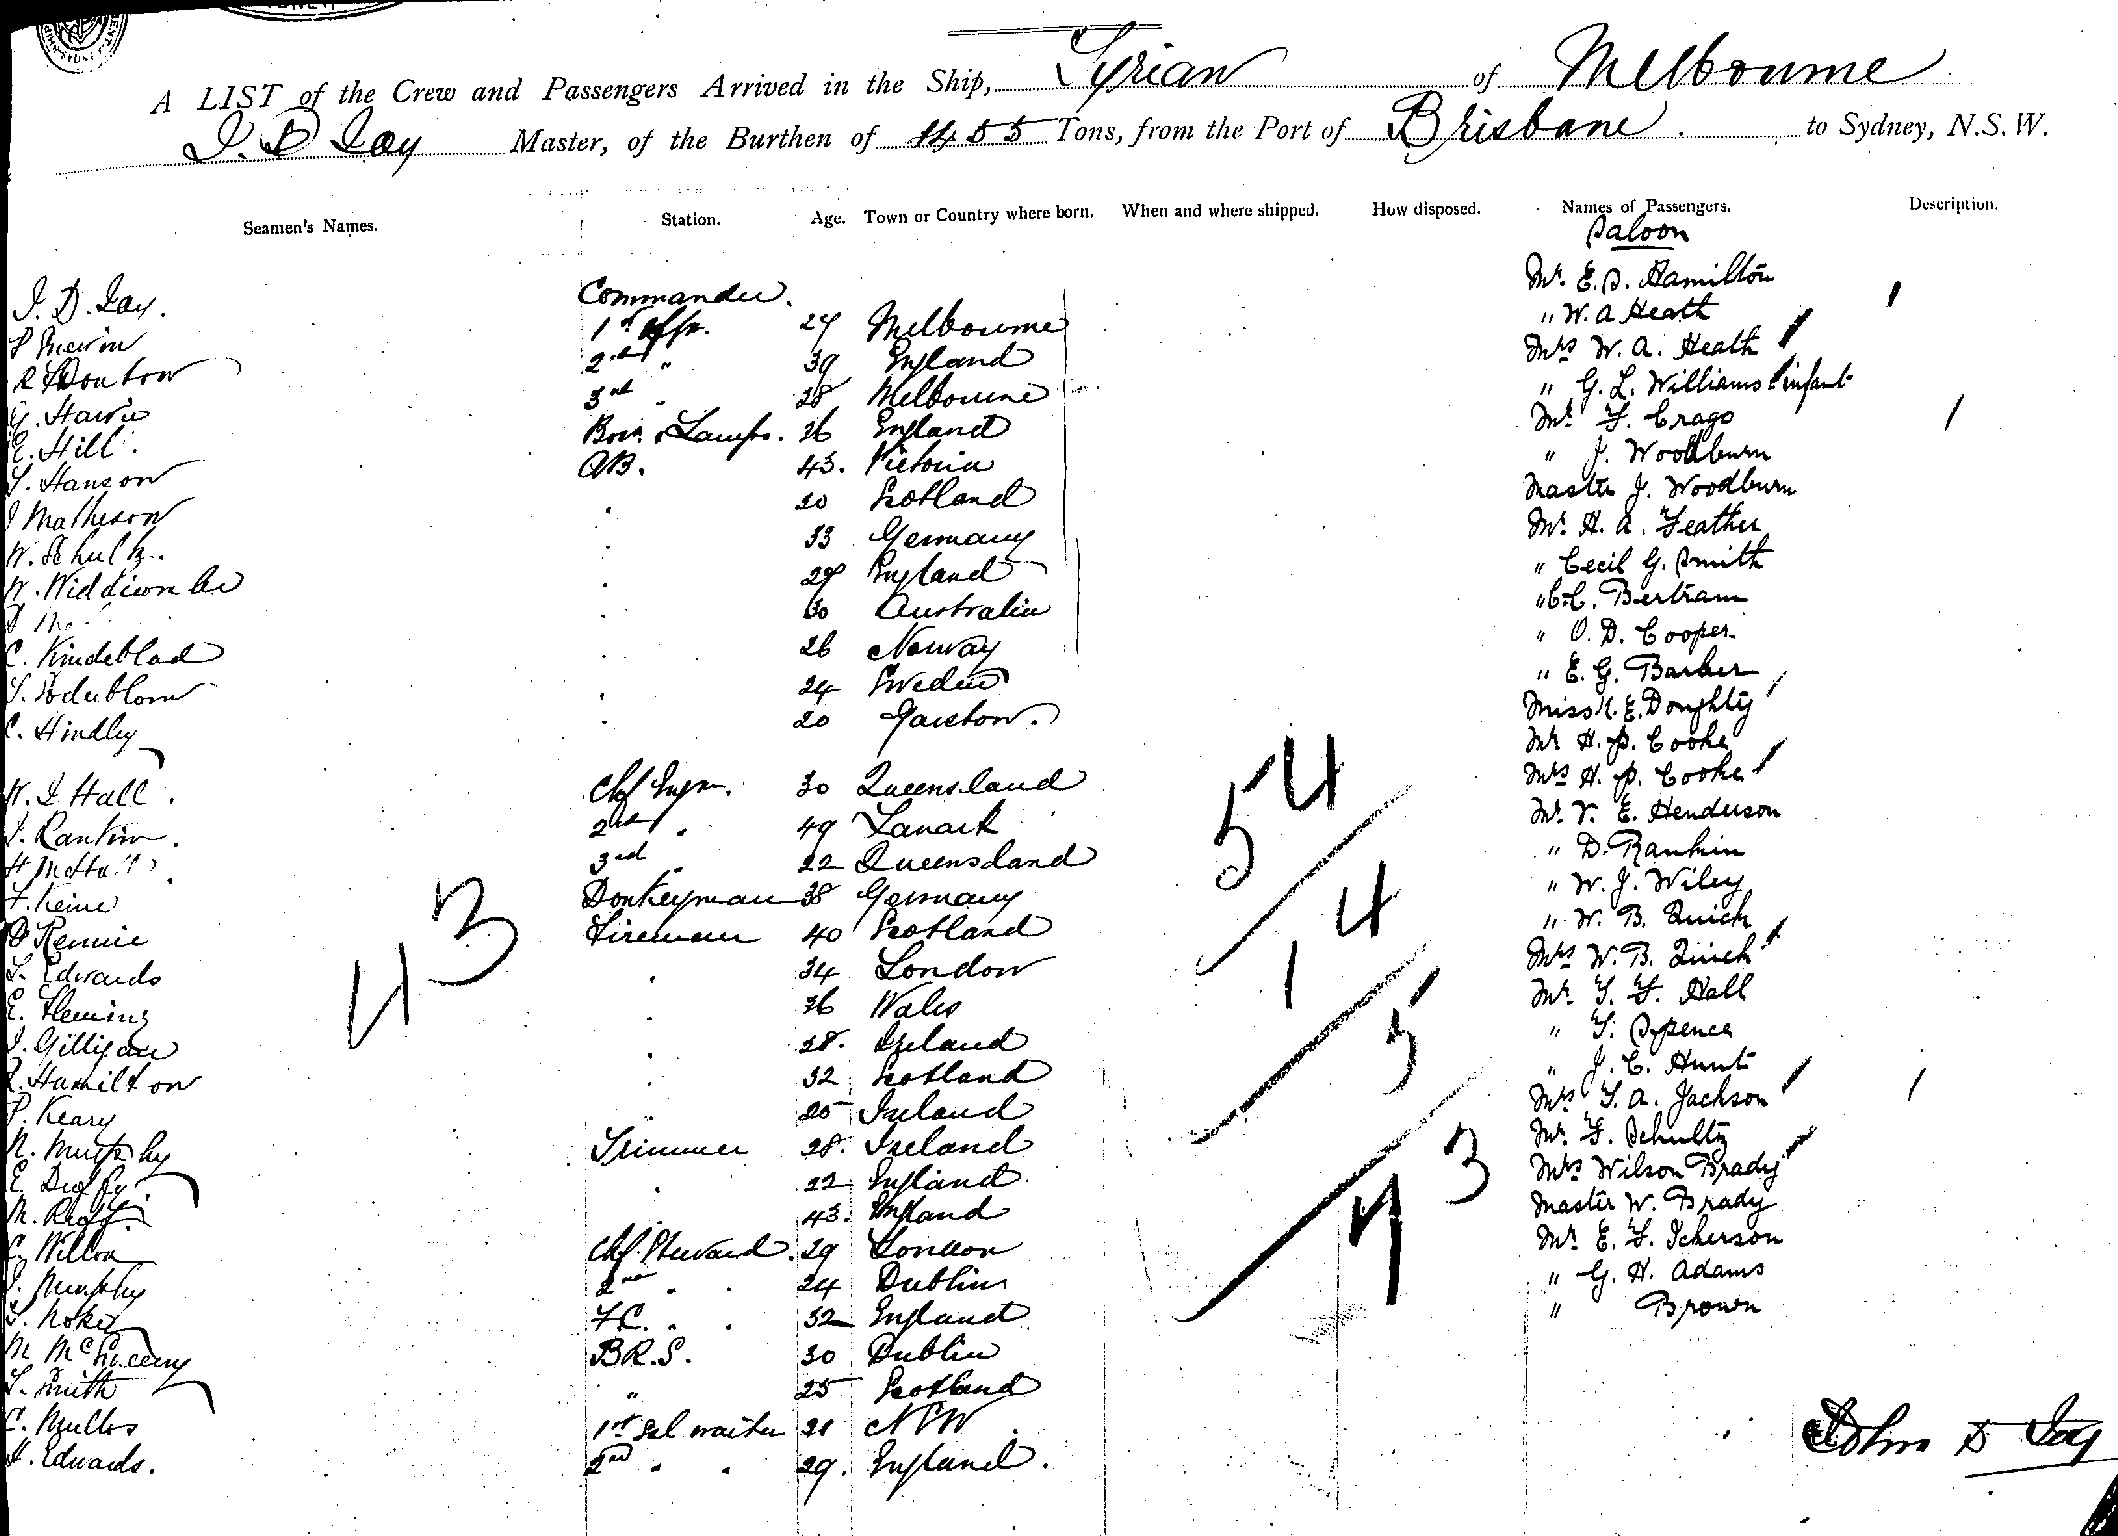 A LIST of the Crew and Passengers Arrived in the Ship, Tyrian of Melbourne
J. D Jay Master, of the Burthen of 1455 Tons, from the Port of Brisbane to Sydney, N.S.W.
Seamen's Names. Station. Age. Town or Country where born. When and where shipped. How disposed. Names of Passengers. Description.
Saloon
J. D. Jay. Commander. Mr. E. S. Hamilton
1st Offr. 27 Melbourne " W. A Heath
2nd " 39 England Mrs W. A. Heath
3rd 28 Melbourne " G. L. Williams & infant
E. Hill. Bosn & Lamps. 36 England Mr. F. Crago
Hanson AB. 43. Victoria " J. Woodburn
Matheson 20 Scotland Master J. Woodburn
W. Schultz. 33 Germany Mr. H. A. Feather
W. Widdicombe 29 England " Cecil G. Smith
30 Australia " C. C. Bertram
C. Kindeblad 26 Norway " O. D. Cooper
24 Sweden " E. G. Barber
C. Hindley 20 Garston. Miss E. Doughty
Mr H. P. Cooke
W. J Hall. Chf Engr. 30 Queensland Mrs H. P. Cooke
J. Rankin. 2nd " 49 Lanark Mr. V. E. Henderson
3rd 22 Queensland " D. Rankin
Donkeyman 38 Germany " W. J. Wiley
Rennie Fireman 40 Scotland " W. B. Quick
Edwards 34 London Mrs W. B. Quick
E. Fleming 36 Wales Mr. T. F. Hall
J. Gilligan 28. Ireland " T. Spence
Hamilton 32 Scotland " J. C. Hunt
P. Keary 25 Ireland Mrs T. A. Jackson
N. Murphy Trimmer 28. Ireland Mr. F. Schultz
E. Duffy 22 England Mrs Wilson Brady
43. England Master W. Brady
Chf. Steward. 29 London Mr. E. F. Ickerson
J. Murphy 2nd 24 Dublin " G. H. Adams
F.C. 32 England " Brown
B.R.S. 30 Dublin
Smith " 25 Scotland
C. Mullos 1st Sal waiter 21 NSW
H. Edwards. 2nd 29. England.
43
54
14
5
73
John D Jay